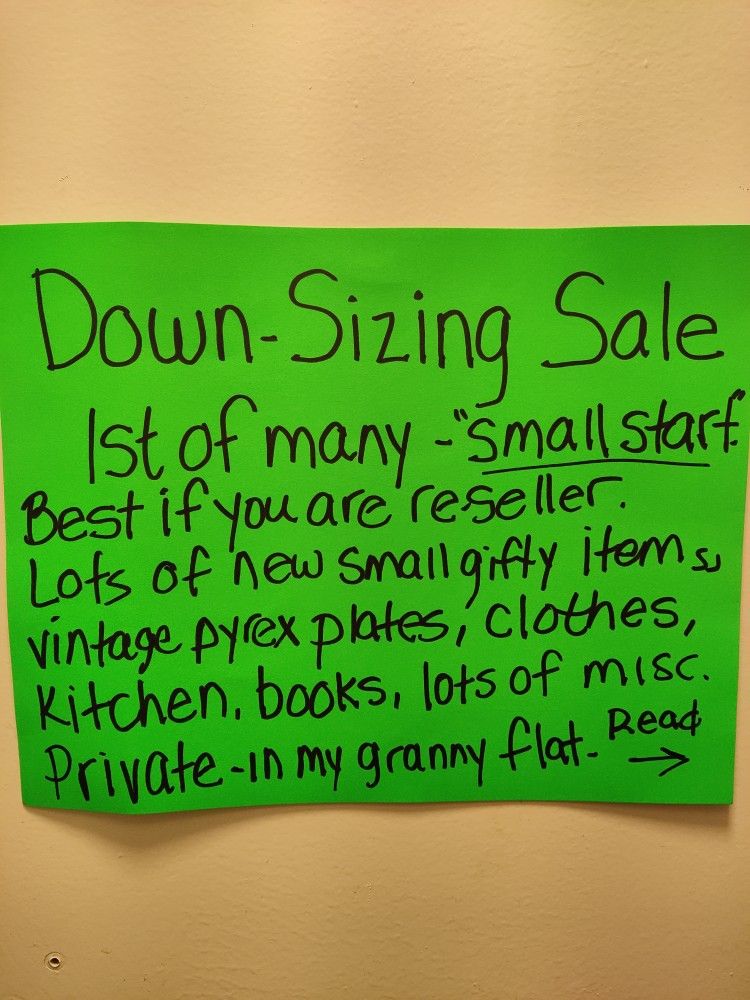 Down-Sizing Sale
1st of many - "small start"
Best if you are reseller.
Lots of new small gifty items,
vintage pyrex plates, clothes,
Kitchen, books, lots of misc.
Private-in my granny flat- Read →